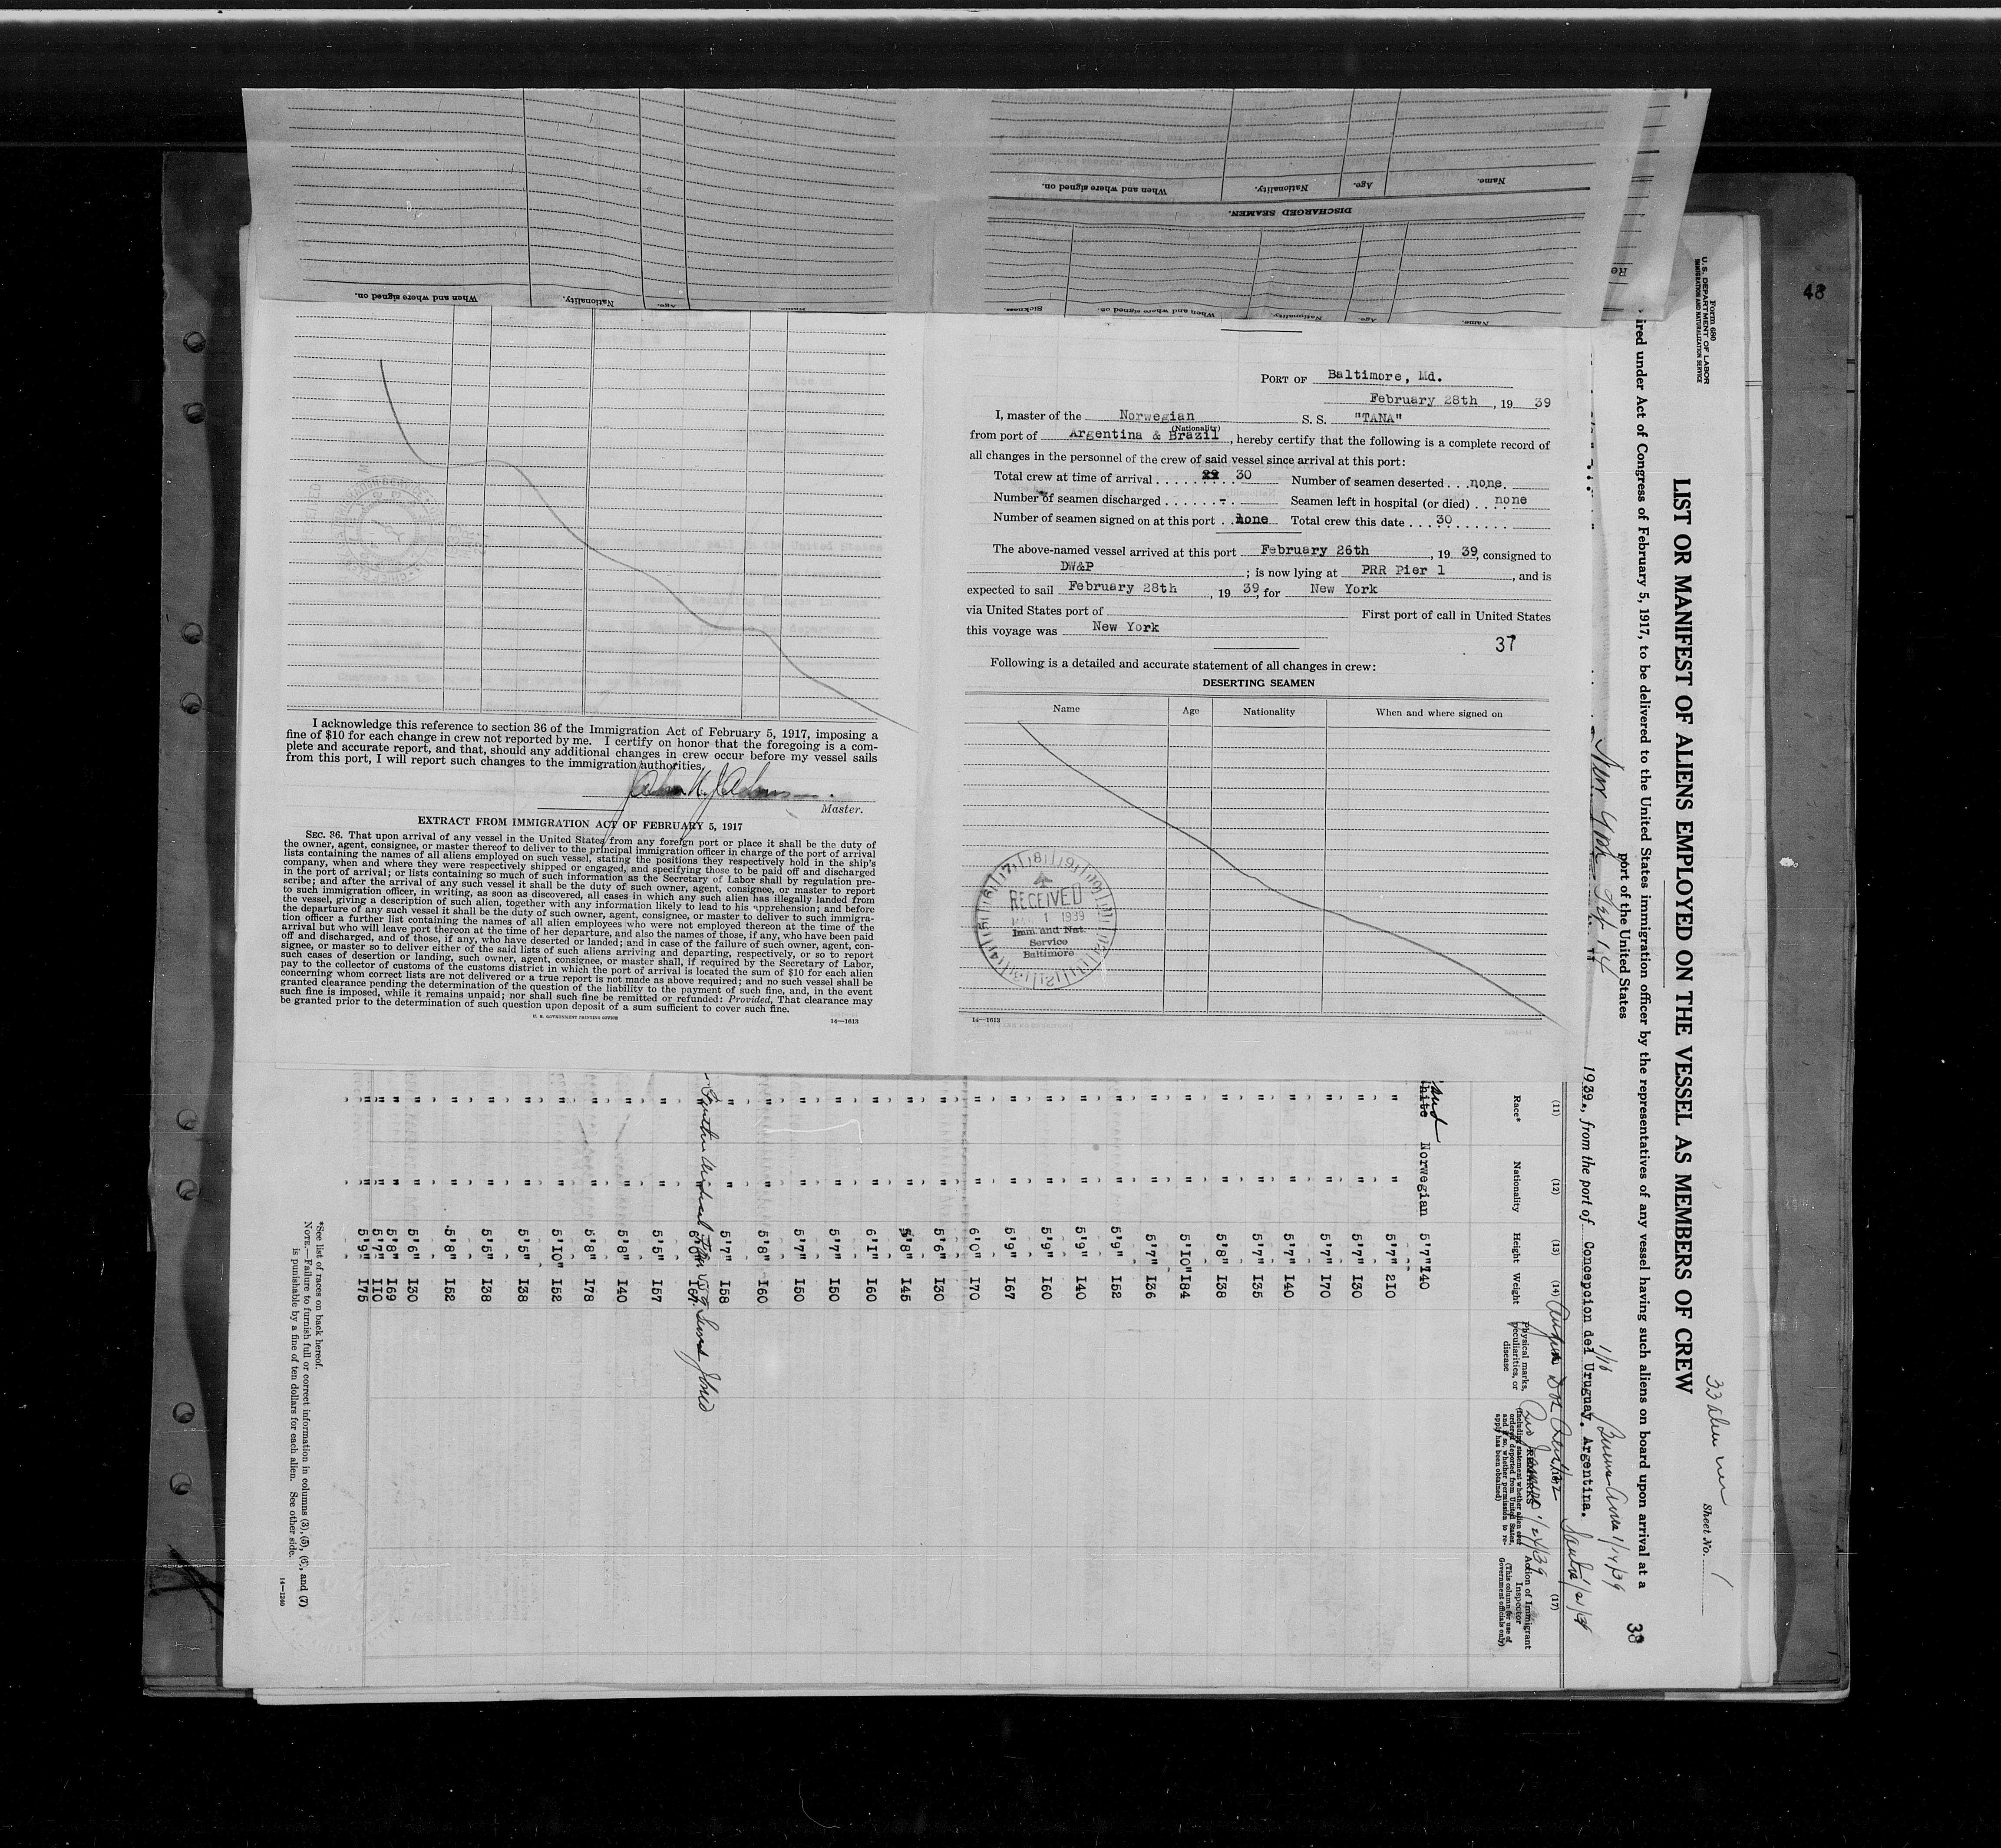 When and where signed on.
Nationality.
Age.
Name.
DISCHARGED SEAMEN.
When and where signed on.
Nationality.
Age.
Sickness.
When and where signed on.
Nationality.
Age.
Name.
PORT OF Baltimore, Md.
February 28th, 19 39
I, master of the Norwegian S. S. "TANA"
(Nationality)
from port of Argentina & Brazil, hereby certify that the following is a complete record of
all changes in the personnel of the crew of said vessel since arrival at this port:
Total crew at time of arrival . . . . . . . 30 Number of seamen deserted . . . none.
Number of seamen discharged . . . . . . - Seamen left in hospital (or died) . . . . none
Number of seamen signed on at this port . . none Total crew this date . . . . 30 . . . . . . . .
The above-named vessel arrived at this port February 26th, 19 39, consigned to
DW&P ; is now lying at PRR Pier 1, and is
expected to sail February 28th, 19 39, for New York
via United States port of First port of call in United States
this voyage was New York
37
Following is a detailed and accurate statement of all changes in crew:
DESERTING SEAMEN
Name Age Nationality When and where signed on
RECEIVED
MAR 1 1939
Imm. and Nat.
Service
Baltimore
14—1613
I acknowledge this reference to section 36 of the Immigration Act of February 5, 1917, imposing a
fine of $10 for each change in crew not reported by me. I certify on honor that the foregoing is a com-
plete and accurate report, and that, should any additional changes in crew occur before my vessel sails
from this port, I will report such changes to the immigration authorities.
Master.
EXTRACT FROM IMMIGRATION ACT OF FEBRUARY 5, 1917
SEC. 36. That upon arrival of any vessel in the United States from any foreign port or place it shall be the duty of
the owner, agent, consignee, or master thereof to deliver to the principal immigration officer in charge of the port of arrival
lists containing the names of all aliens employed on such vessel, stating the positions they respectively hold in the ship's
company, when and where they were respectively shipped or engaged, and specifying those to be paid off and discharged
in the port of arrival; or lists containing so much of such information as the Secretary of Labor shall by regulation pre-
scribe; and after the arrival of any such vessel it shall be the duty of such owner, agent, consignee, or master to report
to such immigration officer, in writing, as soon as discovered, all cases in which any such alien has illegally landed from
the vessel, giving a description of such alien, together with any information likely to lead to his apprehension; and before
the departure of any such vessel it shall be the duty of such owner, agent, consignee, or master to deliver to such immigra-
tion officer a further list containing the names of all alien employees who were not employed thereon at the time of the
arrival but who will leave port thereon at the time of her departure, and also the names of those, if any, who have been paid
off and discharged, and of those, if any, who have deserted or landed; and in case of the failure of such owner, agent, con-
signee, or master so to deliver either of the said lists of such aliens arriving and departing, respectively, or so to report
such cases of desertion or landing, such owner, agent, consignee, or master shall, if required by the Secretary of Labor,
pay to the collector of customs of the customs district in which the port of arrival is located the sum of $10 for each alien
concerning whom correct lists are not delivered or a true report is not made as above required; and no such vessel shall be
granted clearance pending the determination of the question of the liability to the payment of such fine, and, in the event
such fine is imposed, while it remains unpaid; nor shall such fine be remitted or refunded: Provided, That clearance may
be granted prior to the determination of such question upon deposit of a sum sufficient to cover such fine.
U. S. GOVERNMENT PRINTING OFFICE 14—1613
48
Form 680
U. S. DEPARTMENT OF LABOR
IMMIGRATION AND NATURALIZATION SERVICE
Sheet No. 1
LIST OR MANIFEST OF ALIENS EMPLOYED ON THE VESSEL AS MEMBERS OF CREW
ired under Act of Congress of February 5, 1917, to be delivered to the United States immigration officer by the representatives of any vessel having such aliens on board upon arrival at a
port of the United States
38
New York
1939, from the port of Concepcion del Uruguay. Argentina.
Buenos Aires 1/17/39
(11) (12) (13) (14) (17)
Race* Nationality Height Weight Physical marks, peculiarities, or disease REMARKS
(Including statement whether alien ever ordered deported from United States, and if so, whether permission to re-apply has been obtained)
Action of Immigrant Inspector
(This column for use of Government officials only)
Norwegian 5'7" 140
" " 5'7" 210
" " 5'7" 130
" " 5'7" 170
" " 5'7" 140
" " 5'7" 135
" " 5'8" 138
" " 5'10" 184
" " 5'7" 126
" " 5'9" 152
" " 5'9" 140
" " 5'9" 160
" " 5'9" 167
" " 6'0" 170
" " 5'6" 130
" " 5'8" 145
" " 6'1" 160
" " 5'7" 150
" " 5'7" 150
" " 5'8" 160
" " 5'7" 158
" " 5'5" 157
" " 5'8" 140
" " 5'8" 178
" " 5'10" 152
" " 5'5" 138
" " 5'5" 138
" " 5'8" 152
" " 5'6" 130
" " 5'8" 169
" " 5'7" 110
" " 5'9" 175
*See list of races on back hereof.
NOTE.—Failure to furnish full or correct information in columns (3), (5), (6), and (7)
is punishable by a fine of ten dollars for each alien. See other side.
14—1240